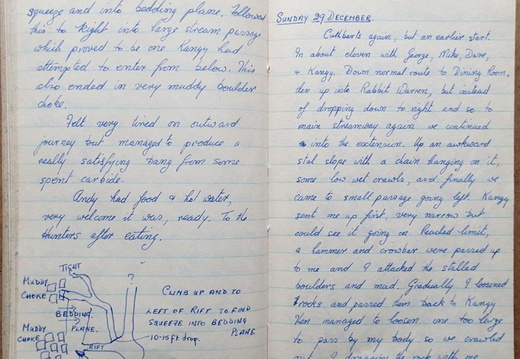 squeeze and into bedding plane. Followed
this to right into large stream passage
which proved to be one Kangy had
attempted to enter from below. This
also ended in very muddy boulder
choke.
Felt very tired on outward
journey but managed to produce a
really satisfying bang from some
spent carbide.
Andy had food & hot water,
very welcome it was, ready. To the
Hunters after eating.
TIGHT
?
MUDDY
CHOKE
BEDDING
PLANE.
MUDDY
CHOKE
RIFT
CLIMB UP AND TO
LEFT OF RIFT TO FIND
SQUEEZE INTO BEDDING
PLANE
10-15 ft drop.
SUNDAY 29 DECEMBER.
Cuthberts again, but an earlier start.
In about eleven with George, Mike, Dave,
& Kangy. Down normal route to Dining Room,
then up into Rabbit Warren, but instead
of dropping down to right and so to
main streamway again we continued
into the extension. Up an awkward
stal slope with a chain hanging on it,
some low wet crawls, and finally we
came to small passage going left. Kangy
sent me up first, very narrow but
could see it going on. Reached limit,
a hammer and crowbar were passed up
to me and I attacked the stalled
boulders and mud. Gradually I loosened
rocks and passed them back to Kangy
then managed to loosen one too large
to pass by my body so we crawled
out, I dragging the rock with me